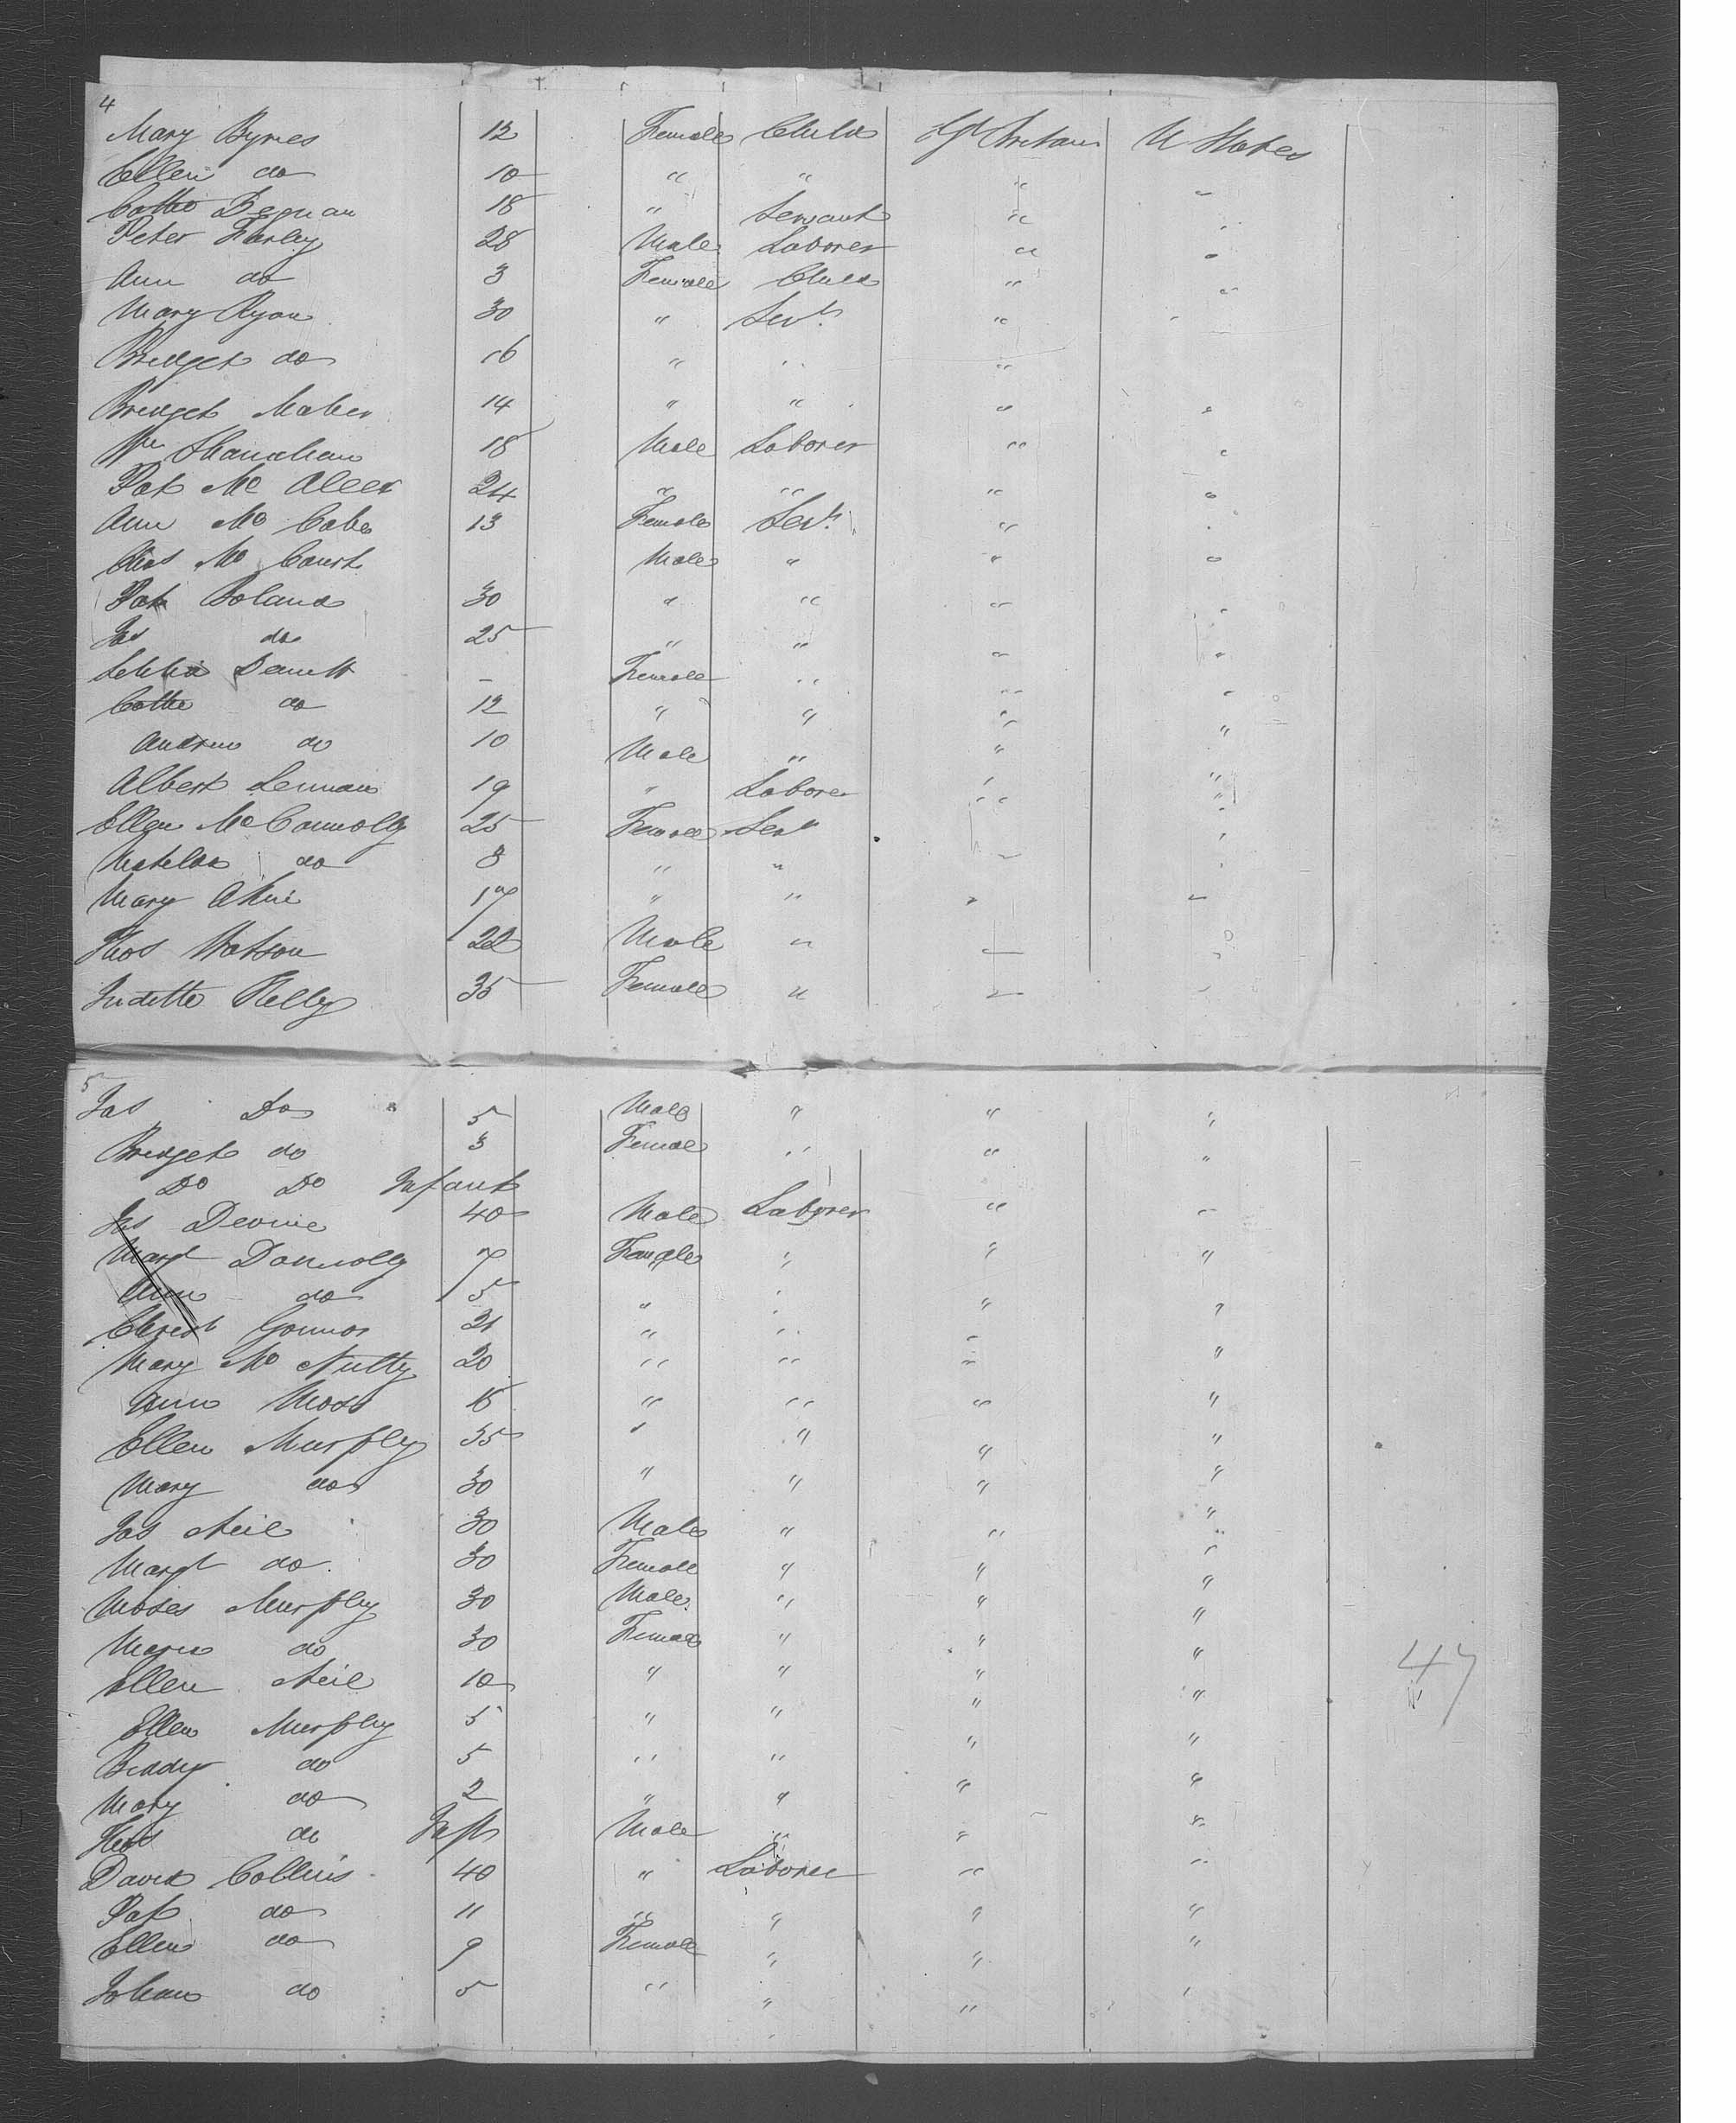 4
Mary Byrnes 12 Female Child Gt Britain U States
Ellen do 10 " " " "
Cathe Degnan 18 " Servant " "
Peter Farley 28 Male Laborer " "
Ann do 3 Female Child " "
Mary Ryan 30 " Servt " "
Bridget do 16 " " "
Bridget Maher 14 " " " "
Wm Shanahan 18 Male Laborer " "
Pat Mc Aleer 24 " " " "
Ann Mc Cabe 13 Female Servt " "
Chas Mc Court Male " " "
Pat Boland 30 " " " "
Jas do 25 " " " "
Female " " "
Cathe do 12 " " " "
Andrew do 10 Male " " "
Albert Lennan 19 " Laborer " "
Ellen McConnolly 25 Female Servt " "
Matilda do 8 " " " "
Mary 17 " " " "
Thos Watson 22 Male " " "
Judith Kelly 35 Female " " "
5
Jas Do 5 Male " " "
Bridget do 3 Female " " "
Do Do Infant
Jas Devine 40 Male Laborer " "
Margt Donnolly 7 Female " " "
Ann do 5 " " " "
Christ Connor 21 " " " "
Mary Mc Nulty 20 " " " "
Ann Moss 15 " " " "
Ellen Murphy 35 " " " "
Mary do 30 " " " "
Jas Neil 30 Male " " "
Margt do 30 Female " " "
Moses Murphy 30 Male " " "
Maria do 30 Female " " "
Ellen Neil 10 " " " "
Ellen Murphy 5 " " " "
Biddy do 5 " " " "
Mary do 2 " " " "
Thos do Inft Male " " "
David Collins 40 " Laborer " "
Pat do 11 " " " "
Ellen do 9 Female " " "
Johan do 5 " " " "
47